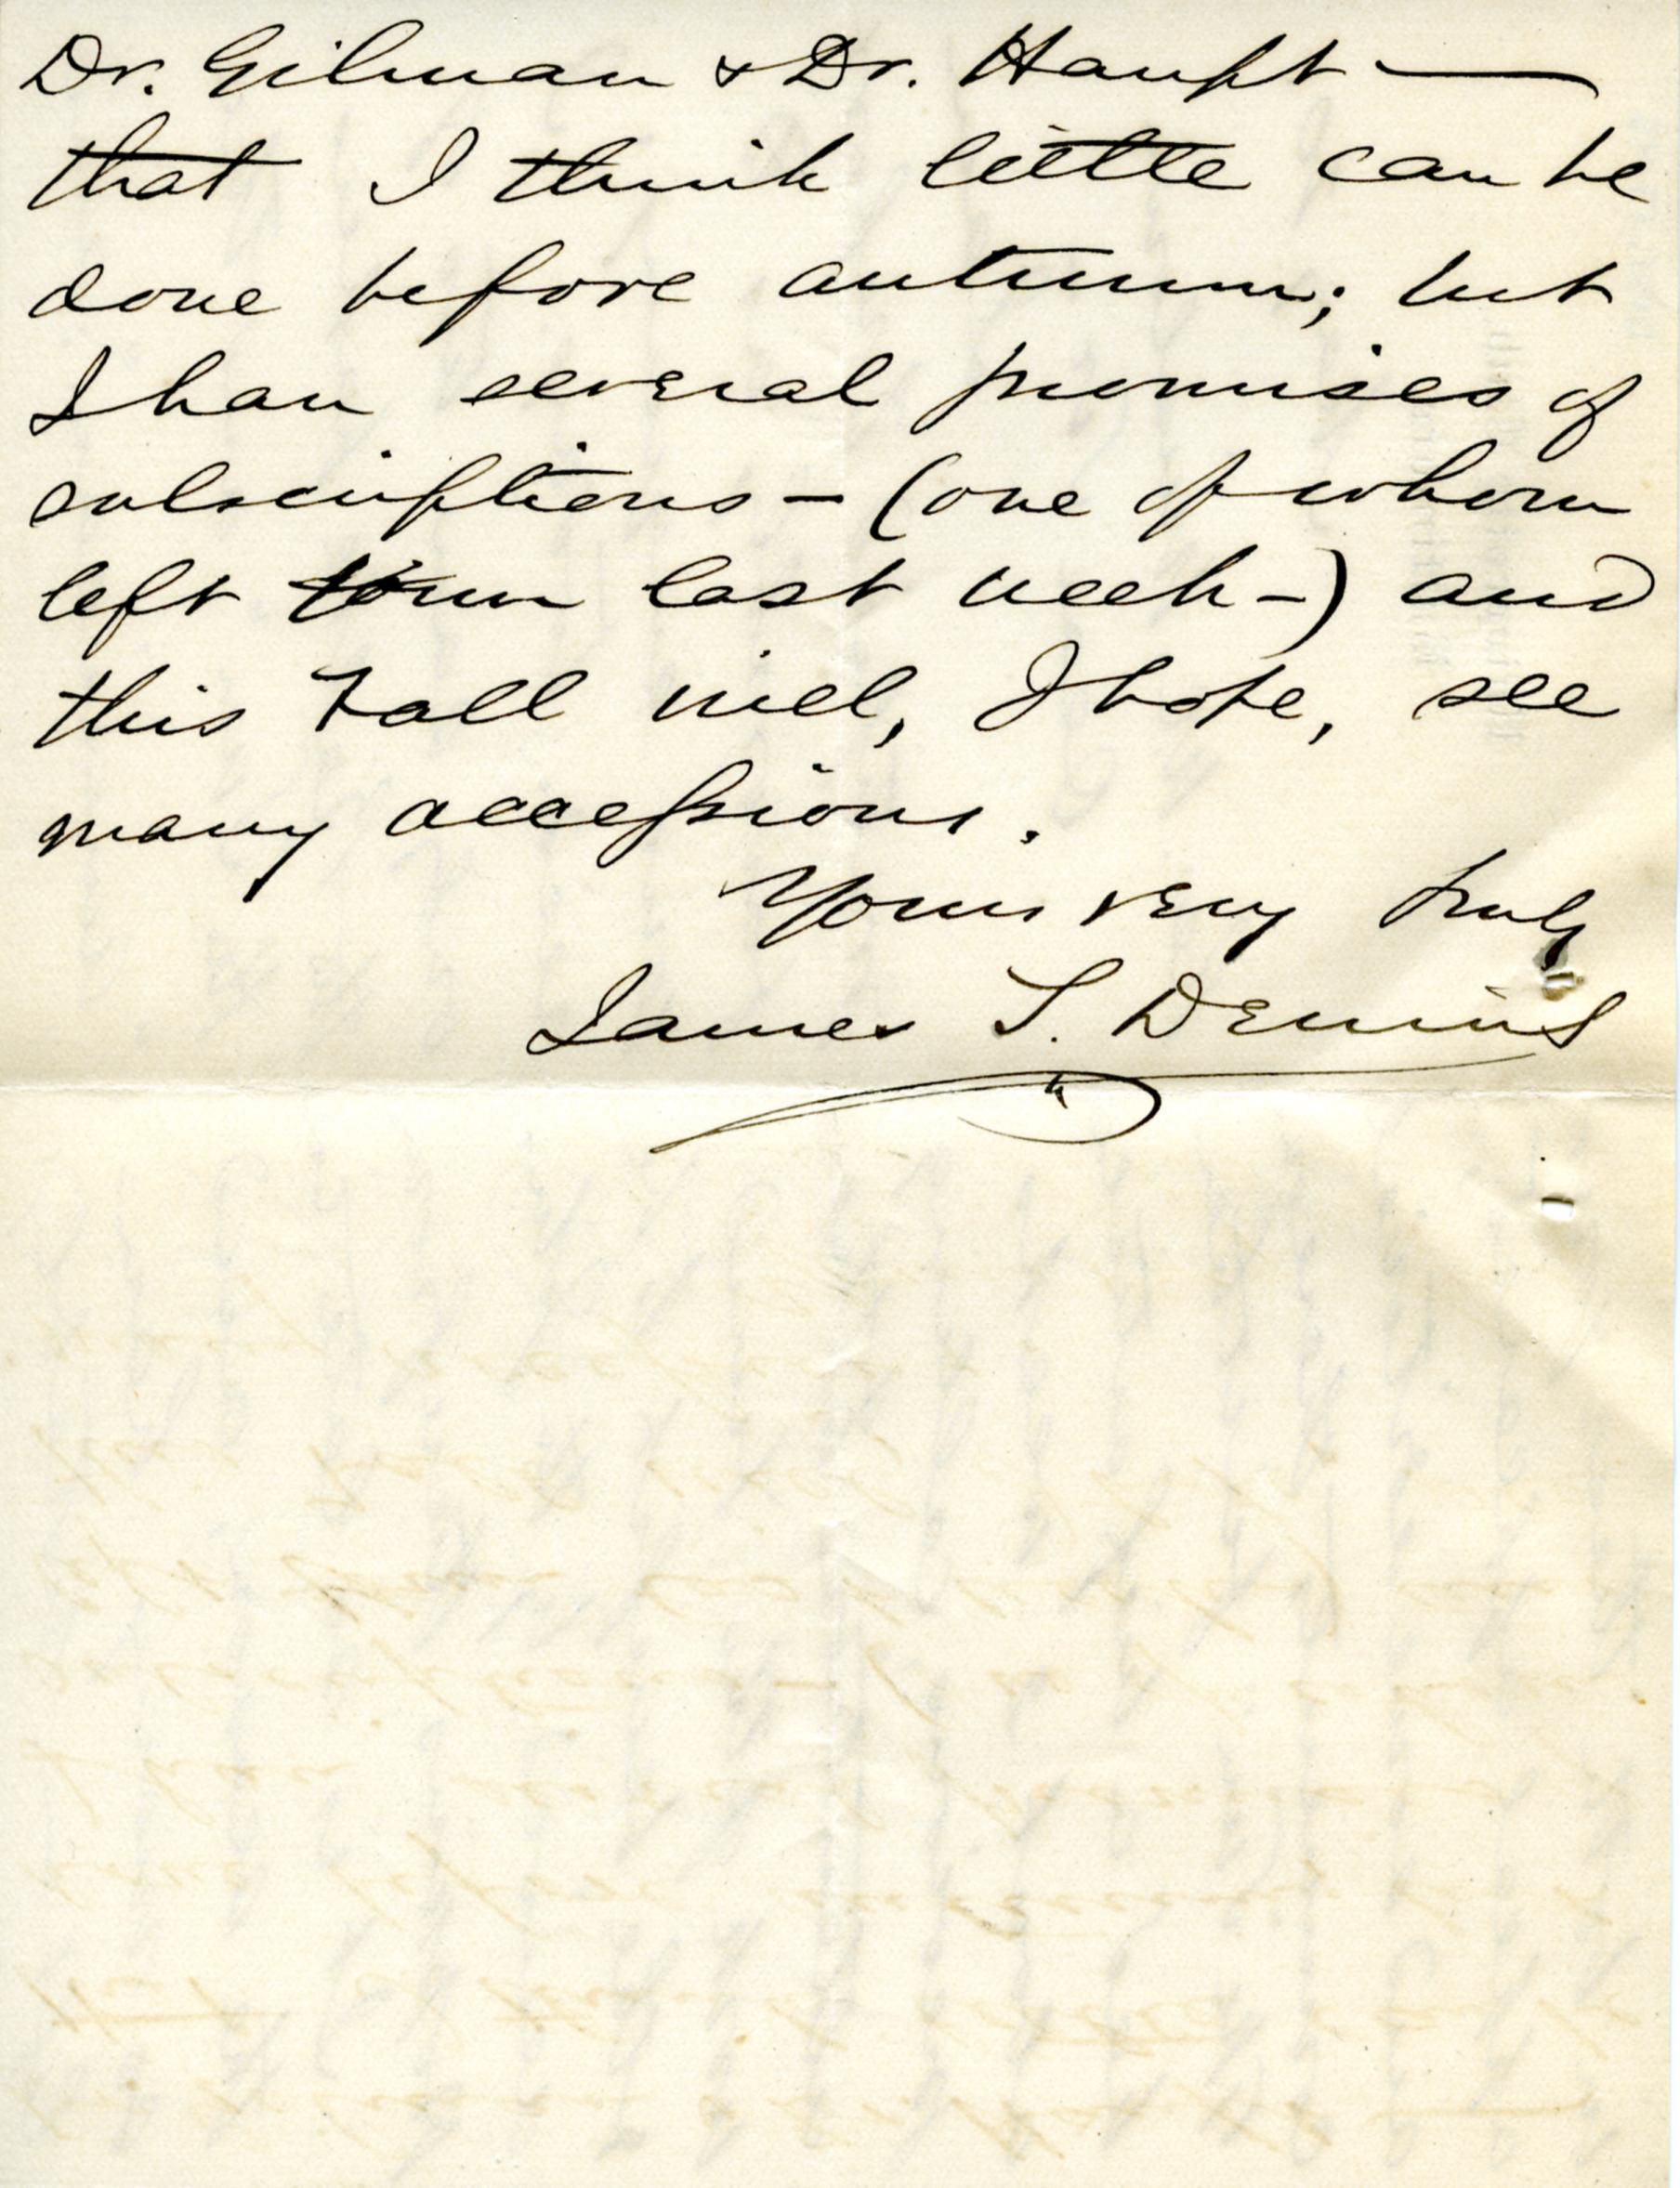 Dr. Gilman & Dr. Haupt —
that I think little can be
done before autumn; but
I have several promises of
subscriptions – (one of whom
left town last week –) and
this Fall will, I hope, see
many accessions.
Yours very truly
James T. Dennis